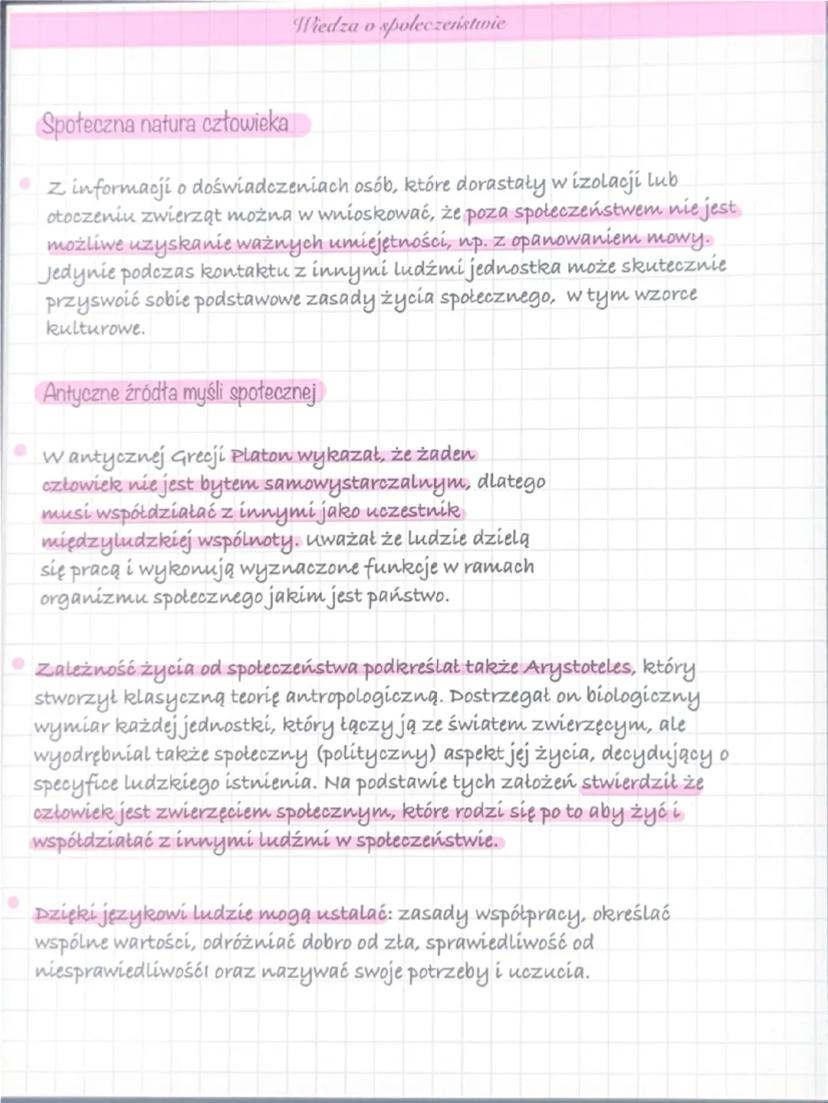 Wiedza o społeczeństwie
Społeczna natura człowieka
Z informacji o doświadczeniach osób, które dorastały w izolacji lub
otoczeniu zwierząt można w wnioskować, że poza społeczeństwem nie jest
możliwe uzyskanie ważnych umiejętności, np. z opanowaniem mowy.
Jedynie podczas kontaktu z innymi ludźmi jednostka może skutecznie
przyswoić sobie podstawowe zasady życia społecznego, w tym wzorce
kulturowe.
Antyczne źródła myśli społecznej
W antycznej Grecji Platon wykazał, że żaden
człowiek nie jest bytem samowystarczalnym, dlatego
musi współdziałać z innymi jako uczestnik
międzyludzkiej wspólnoty. Uważał że ludzie dzielą
się pracą i wykonują wyznaczone funkcje w ramach
organizmu społecznego jakim jest państwo.
Zależność życia od społeczeństwa podkreślał także Arystoteles, który
stworzył klasyczną teorię antropologiczną. Dostrzegał on biologiczny
wymiar każdej jednostki, który łączy ją ze światem zwierzęcym, ale
wyodrębnial także społeczny (polityczny) aspekt jéj życia, decydujący o
specyfice ludzkiego istnienia. Na podstawie tych założeń stwierdził że
człowiek jest zwierzęciem społecznym, które rodzi się po to aby żyć i
współdziałać z innymi ludźmi w społeczeństwie.
Dzięki językowi ludzie mogą ustalać: zasady współpracy, określać
wspólne wartości, odróżniać dobro od zła, sprawiedliwość od
niesprawiedliwośćI oraz nazywać swoje potrzeby i uczucia.